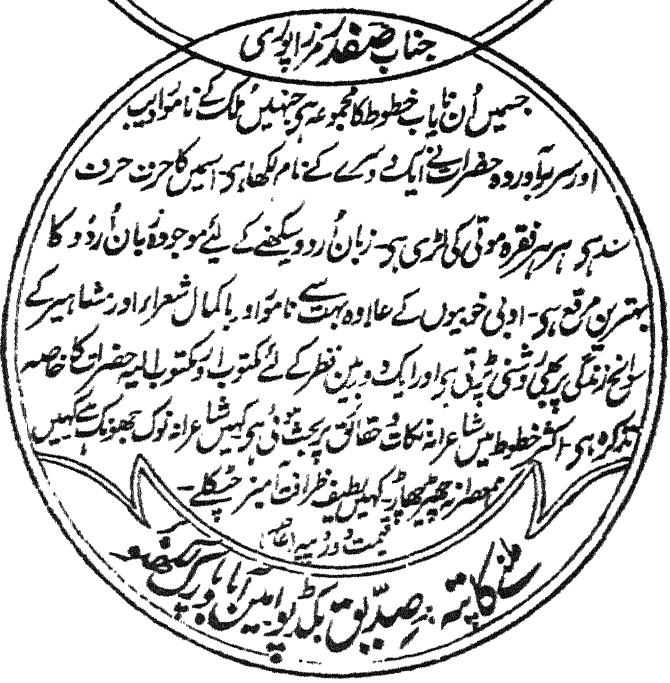 جناب صفدر مرزا پوری
جسمیں اُن نایاب خطوط کا مجموعہ ہی جنہیں ملک کے نامور ادیب
اور سربرآوردہ حضرات نے ایک دوسرے کے نام لکھا ہی۔ اسمیں کا حرف حرف
سند ہی ہر ہر فقرہ موتی کی لڑی ہی۔ زبان اُردو سیکھنے کے لئے موجودہ زبان اُردو کا
بہترین مرقع ہی۔ ادبی خوبیوں کے علاوہ بہت سے نامور اور باکمال شعراء اور مشاہیر کے
سوانح زندگی پر بھی روشنی پڑتی ہی اور ایک دوربین نظر کے لئے مکتوب اور مکتوب الیہ حضرات کا خاصہ
تذکرہ ہی۔ اکثر خطوط میں شاعرانہ نکات و حقائق پر بحث ہوئی ہی کہیں شاعرانہ نوک جھونک ہے کہیں
معاصرانہ چھیڑ چھاڑ۔ کہیں لطیف ظرافت آمیز چٹکلے۔
قیمت دو روپیہ
ملنے کا پتہ :۔ صدیق بکڈپو امین آباد پارک لکھنؤ